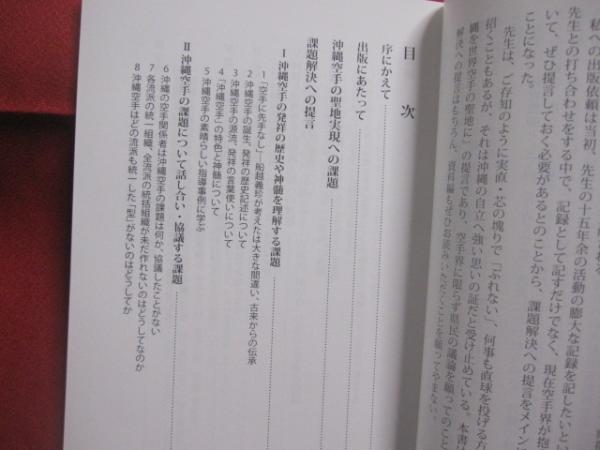 私への出版依頼は当初、
先生の十五年余の活動の膨大な記録を記したいとい
先生との打ち合わせをする中で、記録として記すだけでなく、現在空手界が抱
いて、ぜひ提言しておく必要があるとのことから、課題解決への提言をメインに
ことになった。
先生は、ご存知のように実直・芯の処で「ぶれない」、何事も直球を投げる方
招くこともあるが、それは沖縄の自立へ強い思いの証だと受け止めている。本書は
縄を世界空手の聖地に」の提言であり、空手界に限らず県民の議論を願ってのこと
解決への提言はもちろん、資料編もぜひお読みいただくことを願ってやまない。
目 次
序にかえて
出版にあたって
沖縄空手の聖地実現への課題
課題解決への提言
Ⅰ 沖縄空手の発祥の歴史や神髄を理解する課題
1 「空手に先手なし」船越義珍が考えたは大きな間違い、古来からの伝承
2 沖縄空手の誕生、発祥の歴史記述について
3 沖縄空手の源流、発祥の言葉使いについて
4 「沖縄空手」の特色と神髄について
5 沖縄空手の素晴らしい指導事例に学ぶ
Ⅱ 沖縄空手の課題について話し合い・協議する課題
6 沖縄の空手関係者は沖縄空手の課題は何か、協議したことがない
7 各流派の統一組織、全流派の統括組織が未だ作れないのはどうしてなのか
8 沖縄空手はどの流派も統一した「型」がないのはどうしてか